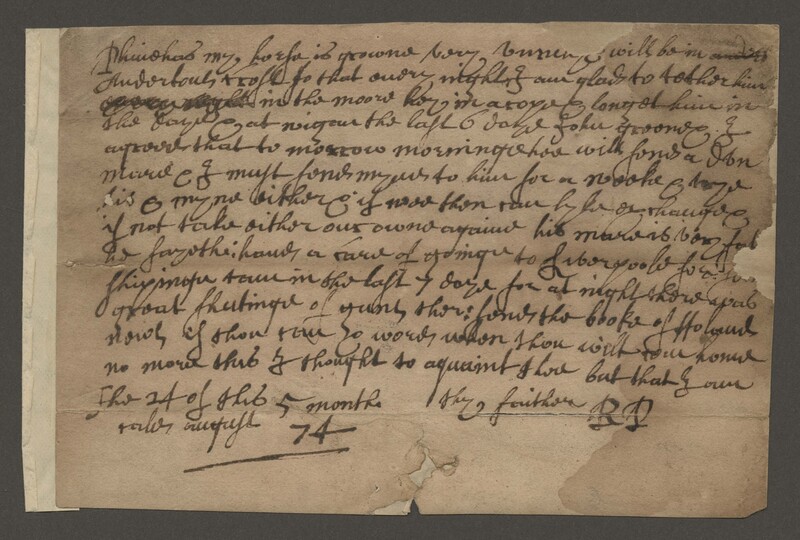 Phinehas my horse is growne very unruly will be in
Andertons croft so that every night I am glad to tether him
in the moore hey in a rope & longet him in
the daye at wigan the last 6 daye John greene & I
agreed that to morrow morninge hee will send a dun
mare & I must send myne to him for a weeke & trye
his & myne either & if wee then can lyke exchange
if not take either our owne againe his mare is very fat
he sayeth: have a care of goinge to Liverpoole for
shippinge came in the last 7 daye for at night there was
great shutinge of guns there send the booke of Holands
newes if thou can & word when thou wilt come home
no more this I thought to aquaint thee but that I am
The 24 of this 5 month thy faither RP
caled august 74